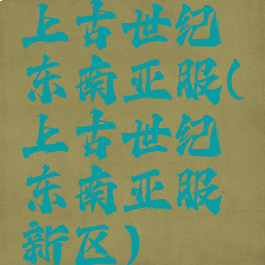 上古世纪
东南亚服(
上古世纪
东南亚服
新区)